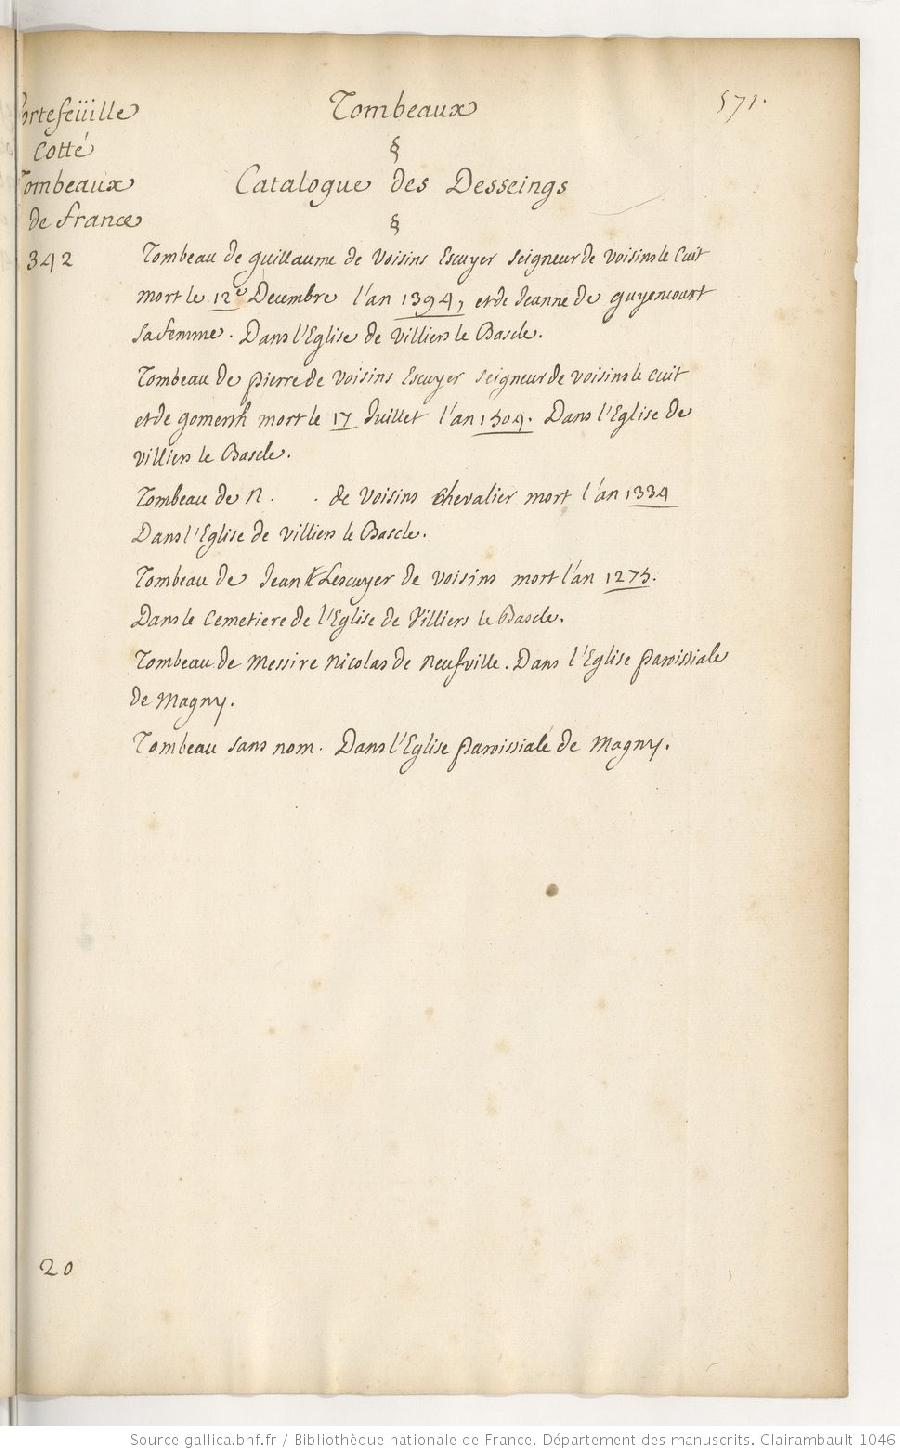 ortefeüille
Cotté
Tombeaux
de france
342
Tombeaux
571.
§
Catalogue des Desseings
§
Tombeau de guillaume de Voisins Escuyer Seigneur de Voisins le Cuit
mort le 12e Decembre l'an 1394, et de Jeanne de guyencourt
Sa femme. Dans l'Eglise de Villiers le Bascle.
Tombeau de pierre de Voisins Escuyer Seigneur de Voisins le Cuit
et de gomerih mort le 17 Juillet l'an 1504. Dans l'Eglise de
Villiers le Bascle.
Tombeau de N. . de Voisins chevalier mort l'an 1334
Dans l'Eglise de Villiers le Bascle.
Tombeau de Jean Lescuyer de Voisins mort l'an 1275.
Dans le Cemetiere de l'Eglise de Villiers le Bascle.
Tombeau de Messire Nicolas de Neufville. Dans l'Eglise paroissiale
de Magny.
Tombeau Sans nom. Dans l'Eglise paroissiale de Magny.
20
Source gallica.bnf.fr / Bibliothèque nationale de France. Département des manuscrits. Clairambault 1046